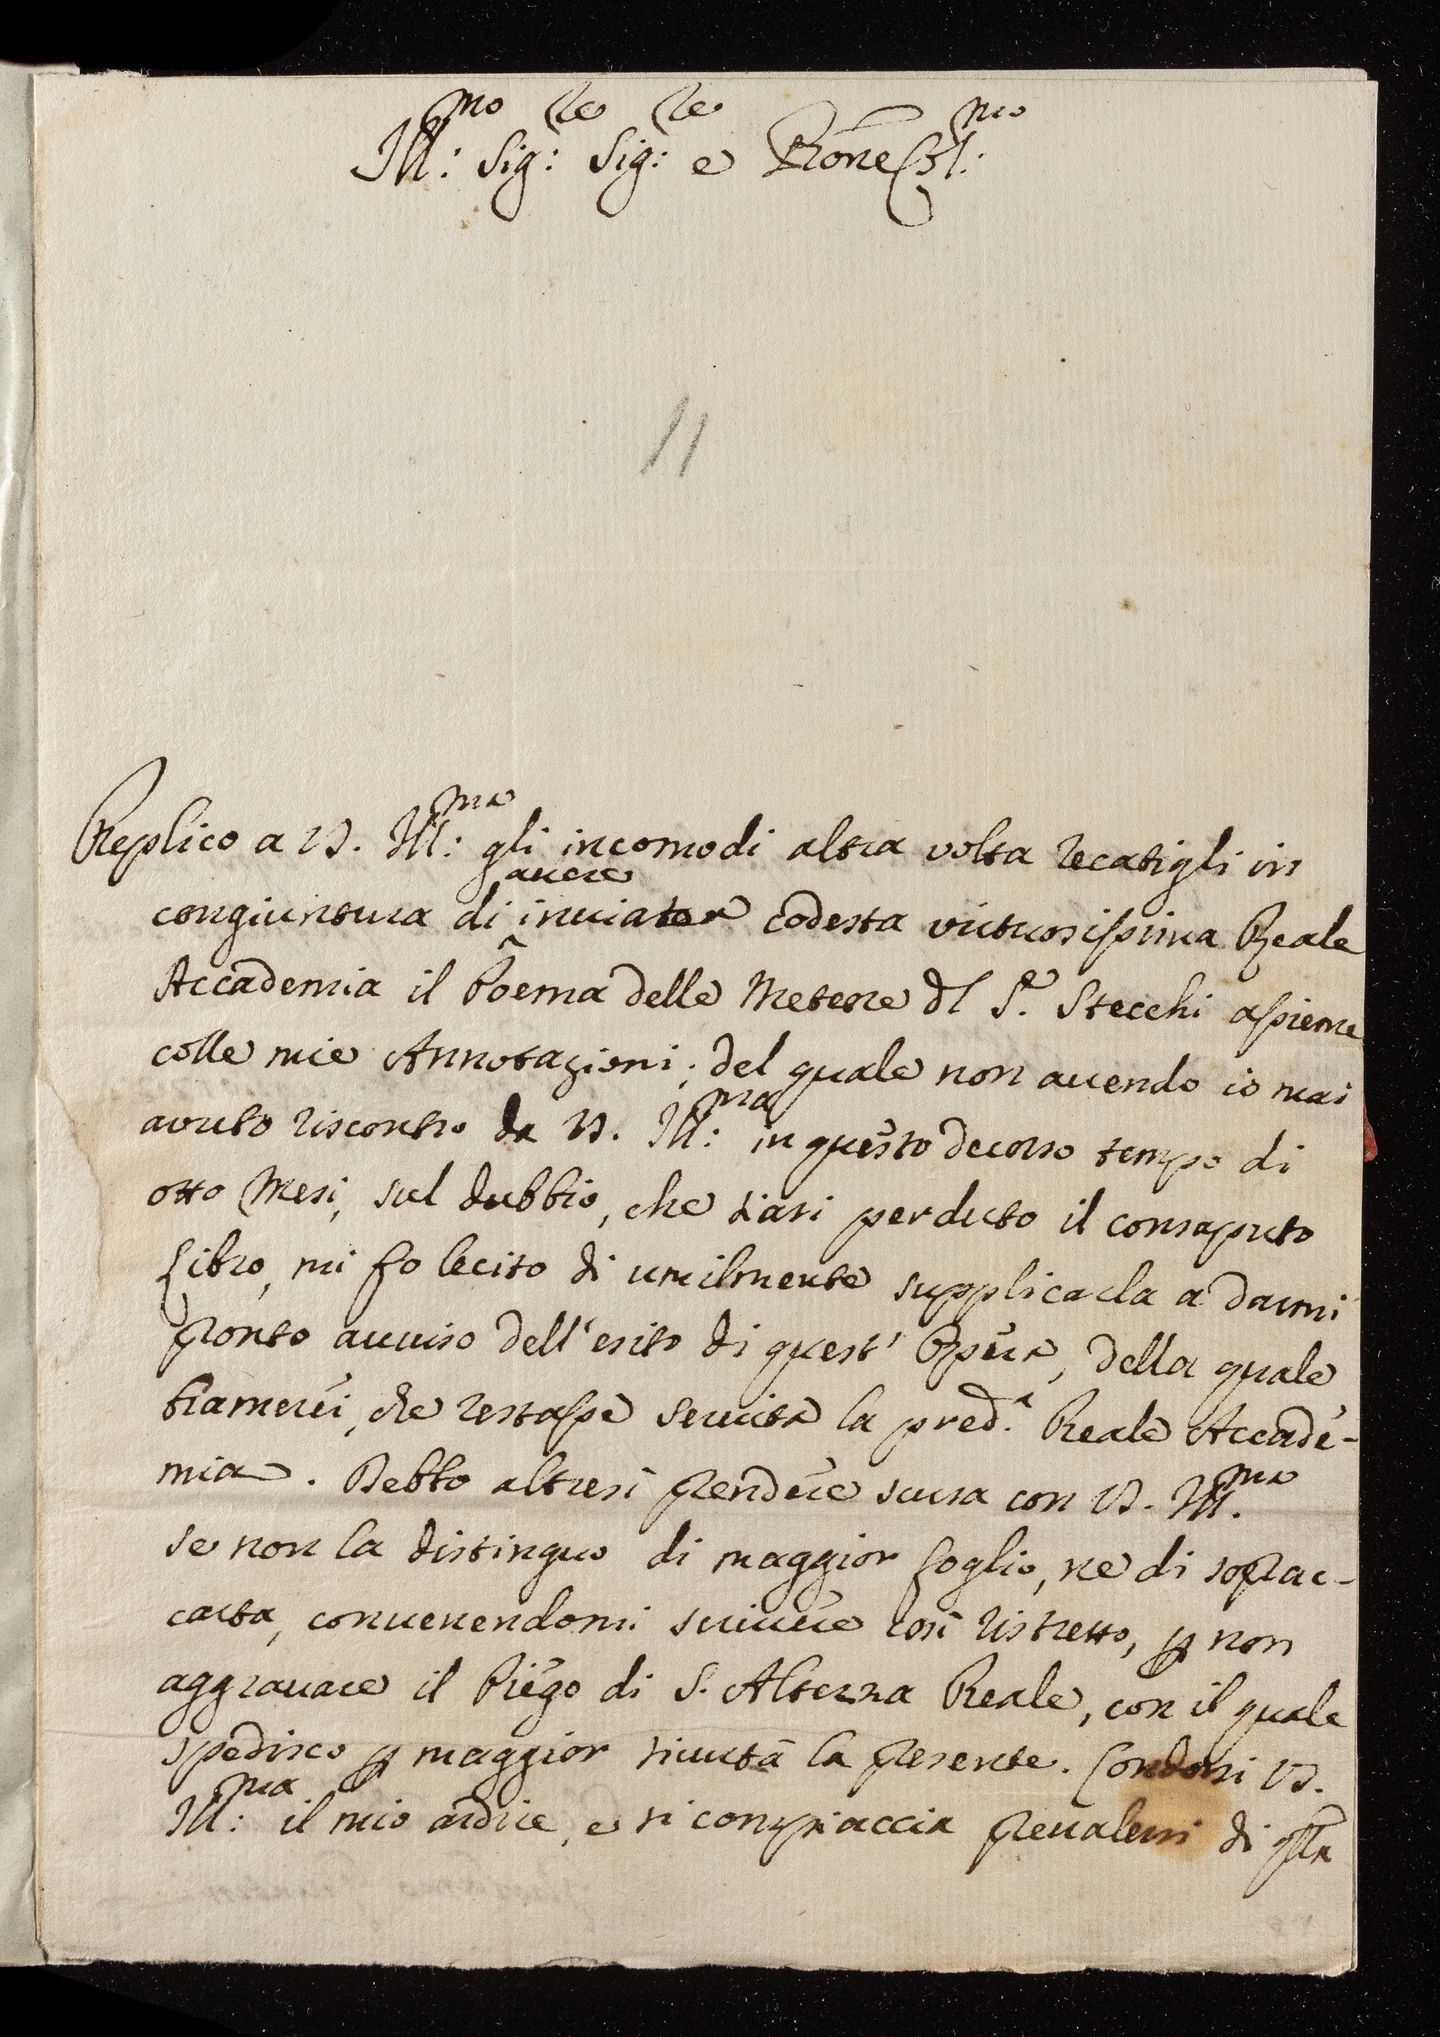 Ill:mo Sig:re Sig:re e Pone Col:mo
11
Replico a VS. Ill:ma gli incomodi altra volta recatigli in
congiuntura di avere inviato a codesta virtuosissima Reale
Accademia il Poema delle Meteore dl Sr. Stecchi assieme
colle mie Annotazioni; del quale non avendo io mai
avuto riscontro da VS. Ill:ma in questo decorso tempo di
otto Mesi, sul dubbio, che siasi perduto il consaputo
Libro, mi fo lecito di umilmente supplicarla a darmi
pronto avviso dell' esito di quest' Opera, della quale
bramerei, che restasse servita la pred.a Reale Accade-
mia. Debbo altresì prendere scusa con VS. Ill.ma
se non la distinguo di maggior foglio, ne di soprac-
carta, convenendomi scrivere così ristretto, p non
aggravare il Piego di S. Altezza Reale, con il quale
spedisco p maggior sicurtà la presente. Condoni VS.
Ill:ma il mio ardire, e si compiaccia prevalersi di qlla